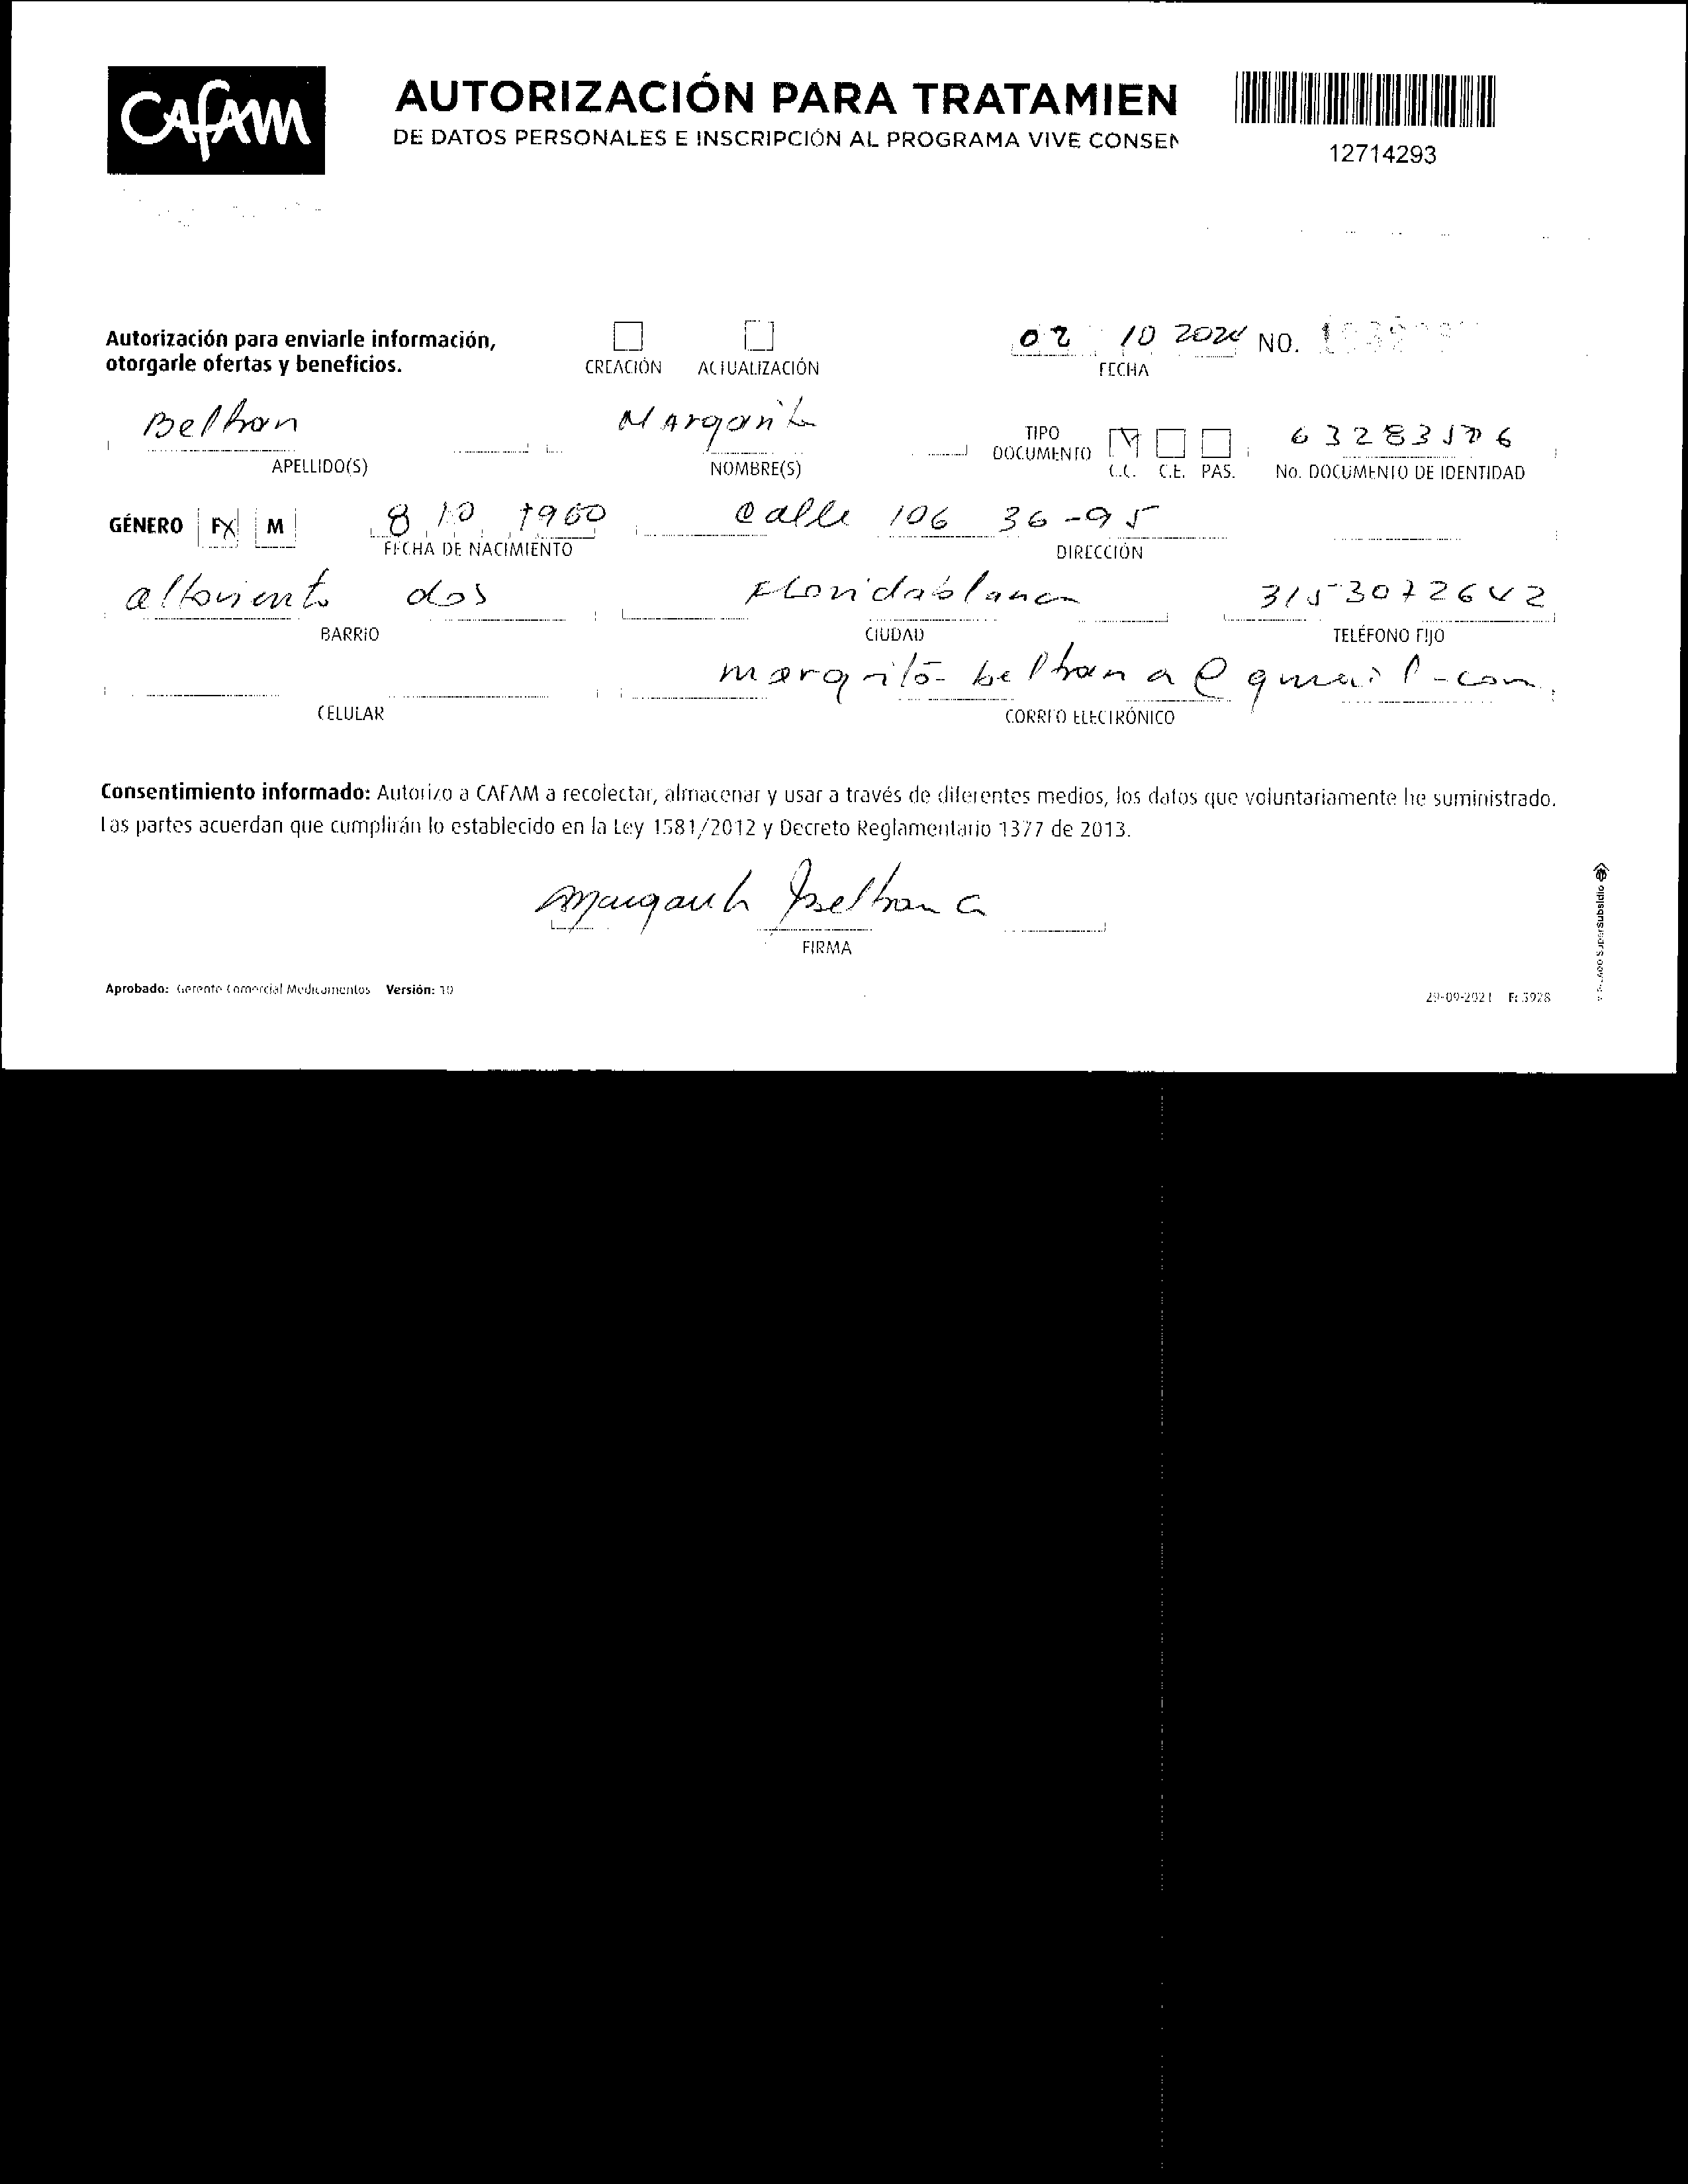 CAFAM
AUTORIZACIÓN PARA TRATAMIEN
DE DATOS PERSONALES E INSCRIPCIÓN AL PROGRAMA VIVE CONSEN
12714293
Autorización para enviarle información,
otorgarle ofertas y beneficios.
CREACIÓN ACTUALIZACIÓN
02 10 2024 NO.
FECHA
Beltran Margarita
TIPO
DOCUMENTO
C.C. C.E. PAS.
APELLIDO(S) NOMBRE(S) No. DOCUMENTO DE IDENTIDAD
GÉNERO FX M 8 10 1960 calle 106 36-95
FECHA DE NACIMIENTO DIRECCIÓN
altoviento dos Floridablanca 3153072642
BARRIO CIUDAD TELÉFONO FIJO
CELULAR CORREO ELECTRÓNICO
Consentimiento informado: Autorizo a CAFAM a recolectar, almacenar y usar a través de diferentes medios, los datos que voluntariamente he suministrado.
Las partes acuerdan que cumplirán lo establecido en la Ley 1581/2012 y Decreto Reglamentario 1377 de 2013.
Margarita Beltran
FIRMA
Aprobado: Gerente Comercial Medicamentos Versión: 10
29-09-2021 F: 5928
SuperSubsidio